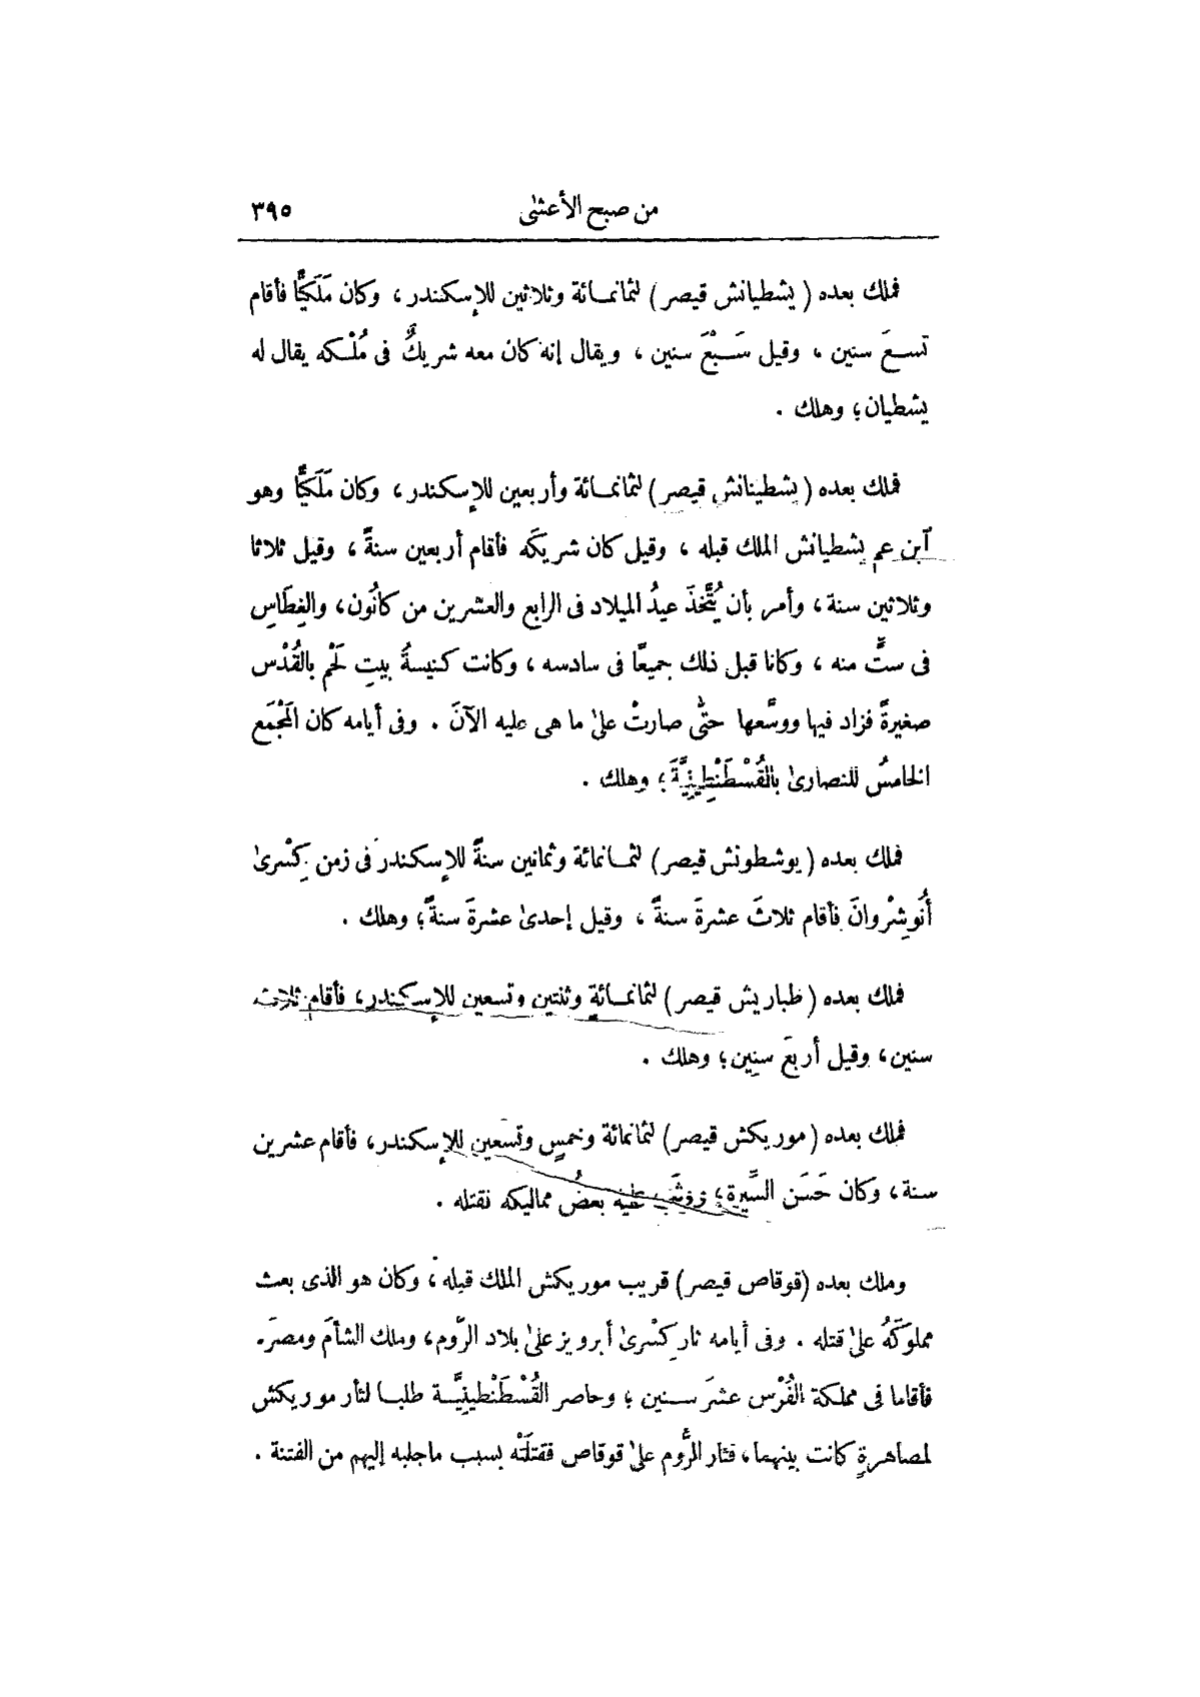 من صبح الأعشى ٣٩٥
فملك بعده (يشطيانش قيصر) لثمانمائة وثلاثين للإسكندر، وكان مَلَكيًّا فأقام
تسعَ سنين، وقيل سَبْعَ سنين، ويقال إنه كان معه شريكٌ فى مُلْكه يقال له
يشطيان؛ وهلك.
فملك بعده (يشطينانش قيصر) لثمانمائة وأربعين للإسكندر، وكان مَلَكيًّا وهو
آبن عم يشطيانش الملك قبله، وقيل كان شريكَه فأقام أربعين سنةً، وقيل ثلاثا
وثلاثين سنة، وأمر بأن يُتَّخذَ عيدُ الميلاد فى الرابع والعشرين من كانُون، والغِطَاسِ
فى ستٍّ منه، وكانا قبل ذلك جميعًا فى سادسه، وكانت كنيسةُ بيتِ لَحْم بالقُدْس
صغيرةً فزاد فيها ووسَّعها حتَّى صارتْ علىٰ ما هى عليه الآنَ. وفى أيامه كان المَجْمَع
الخامسُ للنصارىٰ بالقُسْطَنْطِينِيَّةَ؛ وهلك.
فملك بعده (يوشطونش قيصر) لثمانمائة وثمانين سنةً للإسكندر فى زمن كِسْرىٰ
أَنُوشِرْوانَ فأقام ثلاثَ عشرةَ سنةً، وقيل إحدىٰ عشرةَ سنةً؛ وهلك.
فملك بعده (طباريش قيصر) لثمانمائةٍ وثنتين وتسعين للإسكندر، فأقام ثلاث
سنين، وقيل أربعَ سنِين؛ وهلك.
فملك بعده (موريكش قيصر) لثمانمائة وخمسٍ وتسعين للإسكندر، فأقام عشرين
سنة، وكان حَسَن السِّيرةِ؛ ووثَب عليه بعضُ مماليكه فقتله.
وملك بعده (قوقاص قيصر) قريب موريكش الملك قبله، وكان هو الذى بعث
مملوكَهُ علىٰ قتله. وفى أيامه ثار كِسْرىٰ أبرويز علىٰ بلاد الرُّوم، وملك الشأمَ ومصرَ.
فأقاما فى مملكة الفُرْس عشرَ سنين؛ وحاصر القُسْطَنْطِينِيَّة طلبا لثأر موريكش
لمصاهرةٍ كانت بينهما، فثار الرُّوم علىٰ قوقاص فقتلَتْه بسبب ماجلبه إليهم من الفتنة.